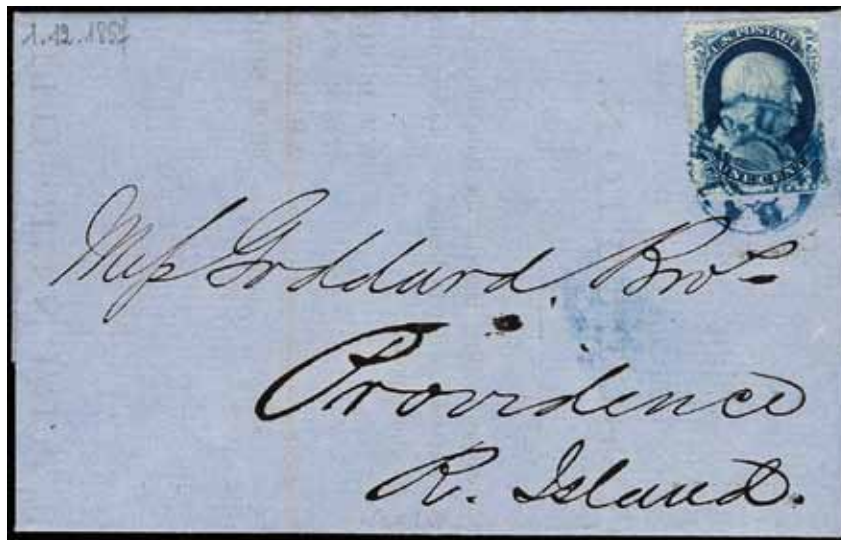 1.12.1857
U.S. POSTAGE
ONE CENT
Mess Goddard Bros
Providence
R. Island.